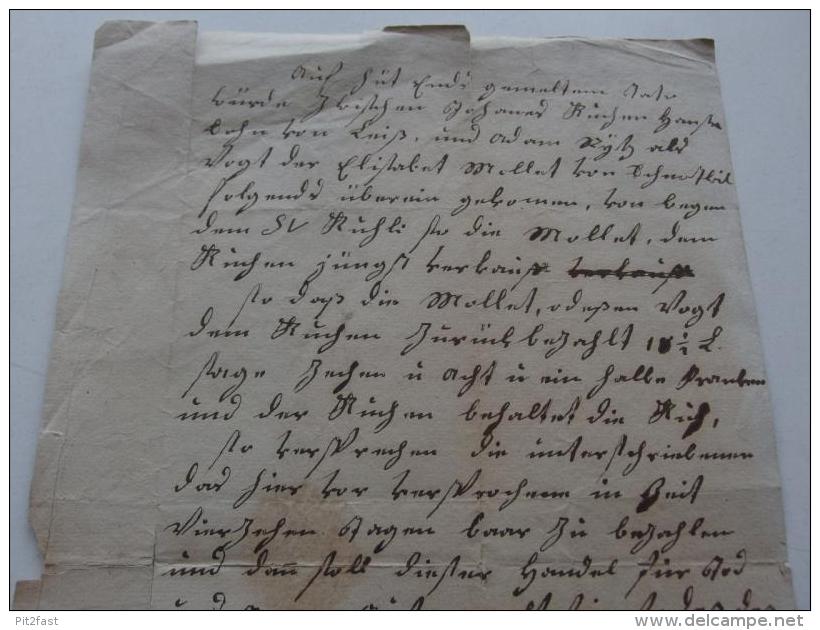 Auf hüt Ends gemeltem Dato
würde Zwischen Johanes Ruchen Hanse
sohn von Leiß, und Adam Rytz als
Vogt der Elisabet Mollet von Schnotwil
folgends überein gekomen, von wegen
dem Kuhli so die Mollet, dem
Ruchen jüngst verkauft verkauft
so daß die Mollet, odeßen Vogt
dem Ruchen Zurück bezahlt 18 ½ L.
sage Zechen u acht u ein halbe Franken
und der Ruchen behaltet die Kuh,
so versprechen die unterschriebenen
das hier vor versprochene in Zeit
Vierzehen Tagen baar Zu bezahlen
und dann soll dieser Handel für Tod
und
Pit2fast
www.delcampe.net